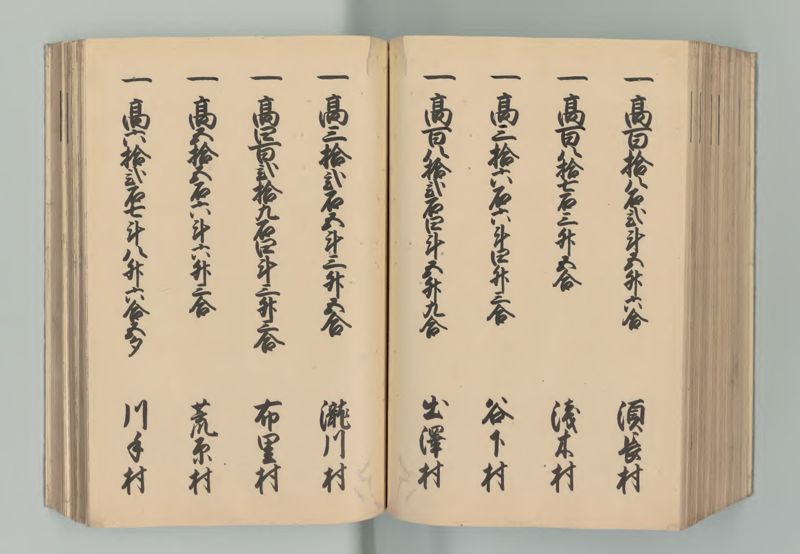 一 高百拾八石弐斗五升六合 須長村
一 高百八拾七石三升五合 浅木村
一 高三拾六石六斗四升三合 谷下村
一 高百八拾弐石四斗五升九合 出澤村
一 高三拾弐石五斗三升五合 瀧川村
一 高四百弐拾九石四斗三升三合 布里村
一 高五拾五石六斗六升三合 荒原村
一 高六拾弐石七斗八升六合五夕 川手村